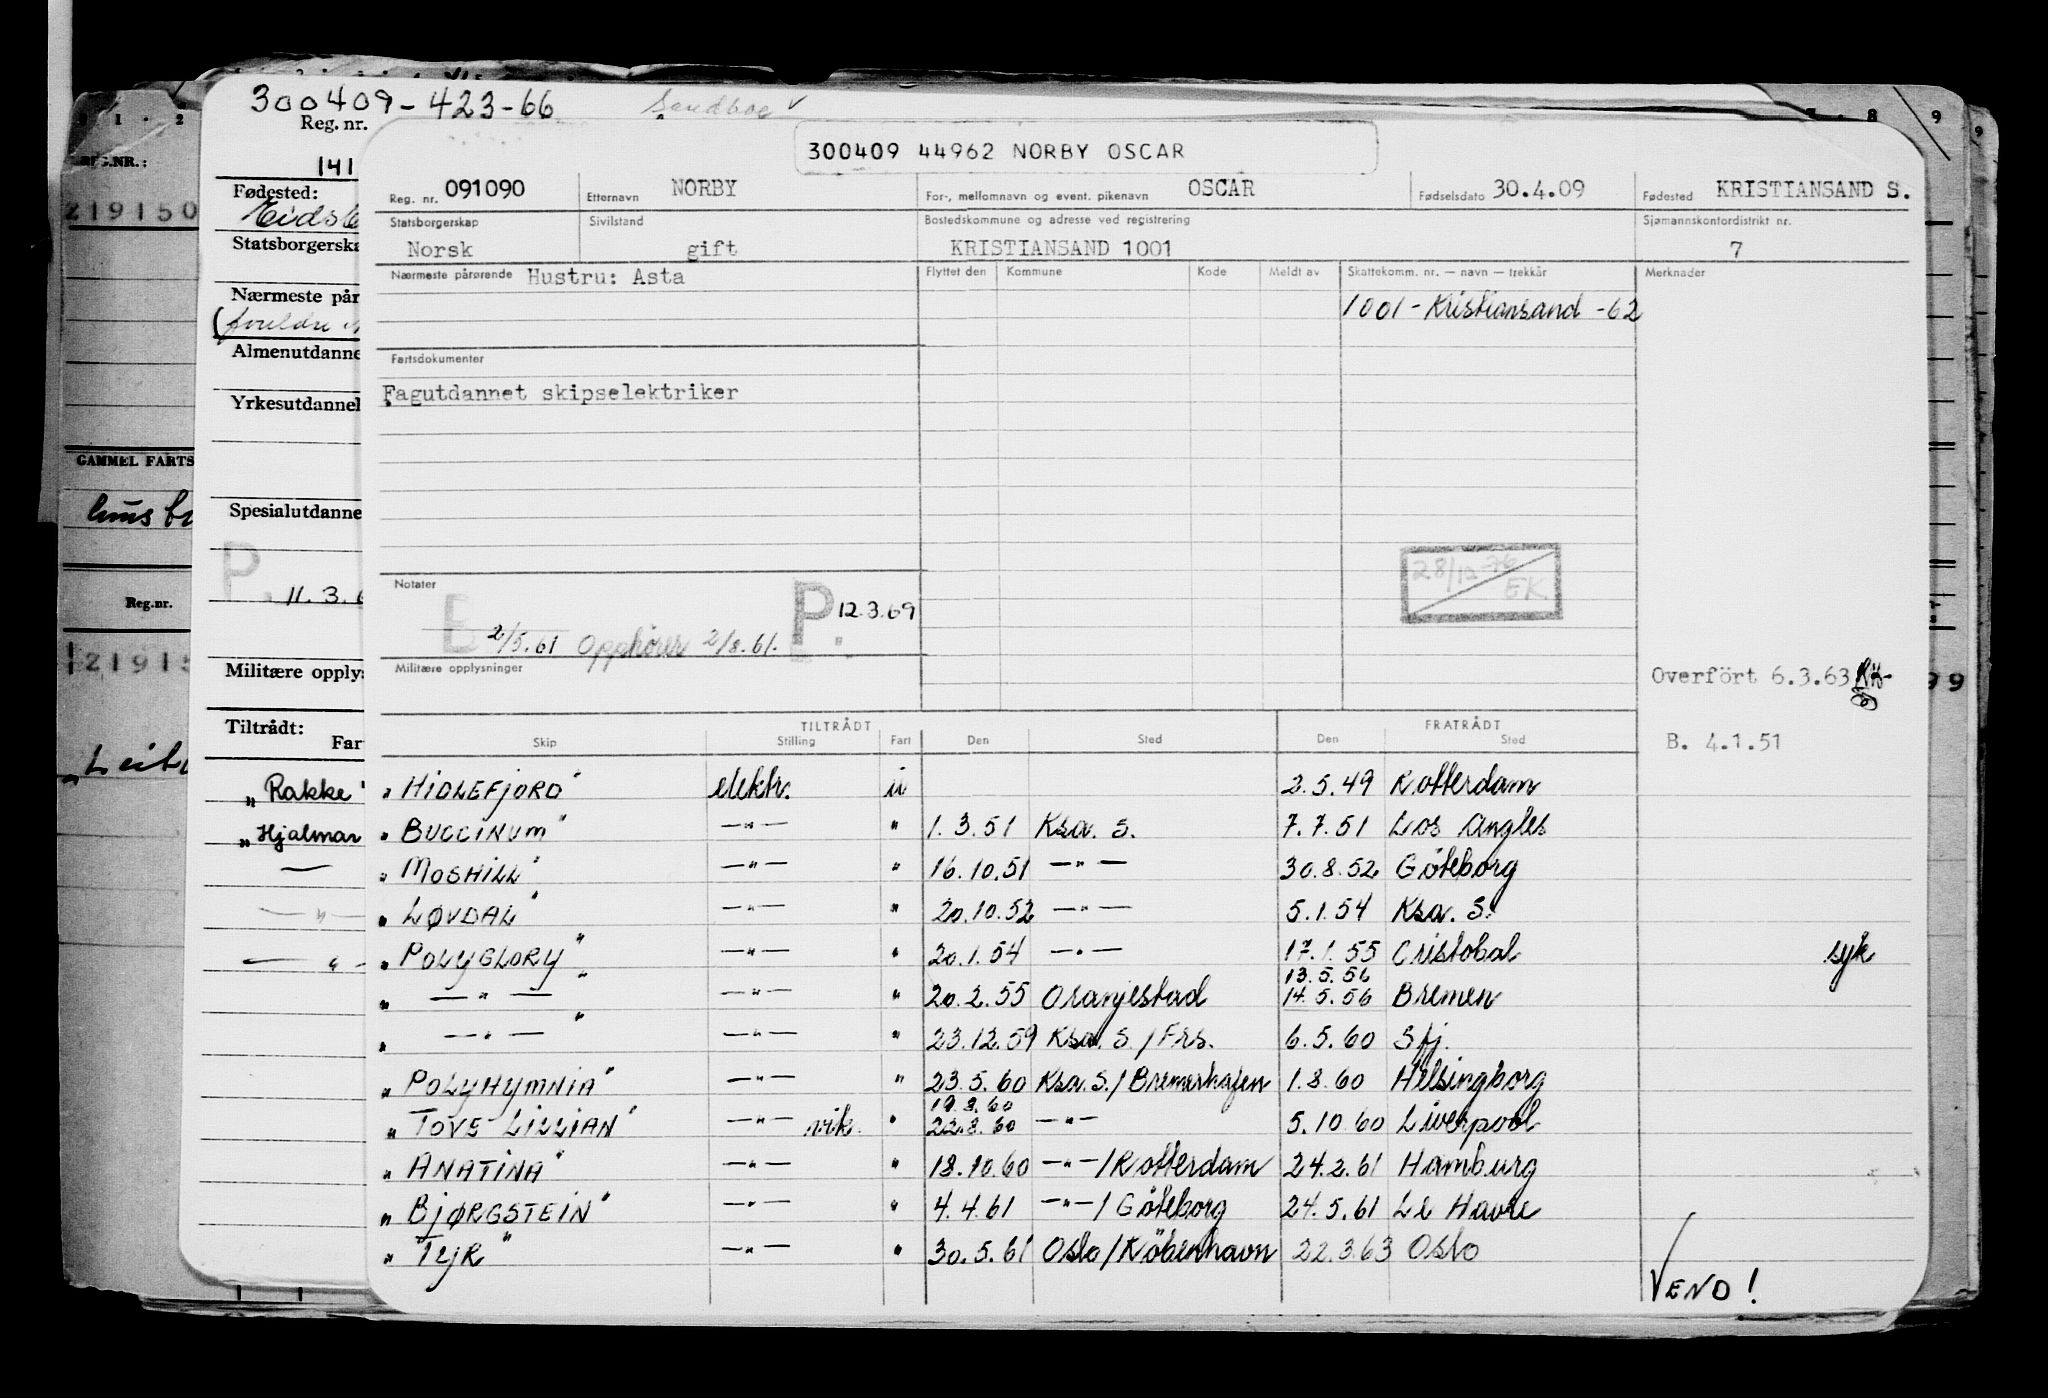 300409-423-66
Reg. nr.
300409 44962 NORBY OSCAR
REG.NR.:
141
Reg. nr. 091090 Etternavn NORBY For-, mellomnavn og event. pikenavn OSCAR Fødselsdato 30.4.09 Fødested KRISTIANSAND S.
219150
Fødested:
Statsborgerskap Sivilstand Bostedskommune og adresse ved registrering Sjømannskontordistrikt nr.
Norsk gift KRISTIANSAND 1001 7
Statsborgerska
Nærmeste pårørende Hustru: Asta Flyttet den Kommune Kode Meldt av Skattekomm. nr. — navn — trekkår Merknader
Nærmeste pår
1001 - Kristiansand -62
(foreldre
Almenutdanne
Fartsdokumenter
Fagutdannet skipselektriker
Yrkesutdannel
GAMMEL FARTS
Spesialutdanne
P.
11.3.6
Reg.nr.
Notater
28/12-76 EK
E P. 12.3.69
2/5.61 Opphører 2/8.61.
Militære opplysninger
21915
Militære opplys
Overfört 6.3.63
99
Tiltrådt:
Far
TILTRÅDT FRATRÅDT
Skip Stilling Fart Den Sted Den Sted
B. 4.1.51
„Rakke"
„HIDLEFJORD" elektr. u 2.5.49 Rotterdam
„Hjalmar
„BUCCINUM" —"— " 1.3.51 Ksa. S. 7.7.51 Los Angles
„MOSHILL" —"— " 16.10.51 —"— 30.8.52 Göteborg
„LØVDAL" —"— " 20.10.52 —"— 5.1.54 Ksa. S.
„POLYGLORY" —"— " 20.1.54 —"— 17.1.55 Cristobal syk
13.5.56
„ —"— " —"— " 20.2.55 Oranjestad 14.5.56 Bremen
„ —"— " —"— " 23.12.59 Ksa. S./Frs. 6.5.60 Sfj.
„POLYHYMNIA" —"— " 23.5.60 Ksa. S./Bremerhafen 1.8.60 Helsingborg
19.8.60
„TOVE LILLIAN" —"— vik. " 22.8.60 —"— 5.10.60 Liverpool
„ANATINA" —"— " 18.10.60 —"—/Rotterdam 24.2.61 Hamburg
„BJØRGSTEIN" —"— " 4.4.61 —"—/Göteborg 24.5.61 Le Havre
„TYR" —"— " 30.5.61 Oslo/Köbenhavn 22.3.63 Oslo
VEND!